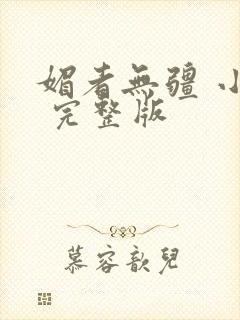 媚者無疆 小
完整版
慕容歆兒